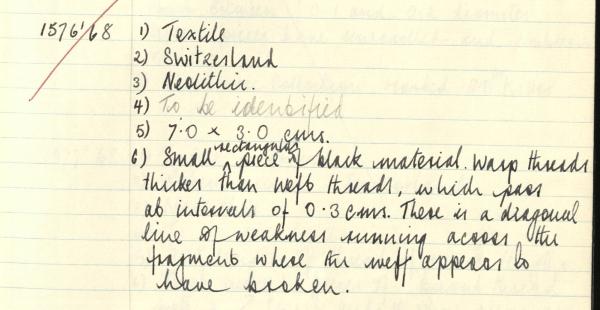 1576'/68 1) Textile
2) Switzerland
3) Neolithic.
4) To be identified
5) 7.0 x 3.0 cms.
6) Small rectangular piece of black material. Warp threads
thicker than weft threads, which pass
at intervals of 0.3 cms. There is a diagonal
line of weakness running across the
fragment where the weft appears to
have broken.